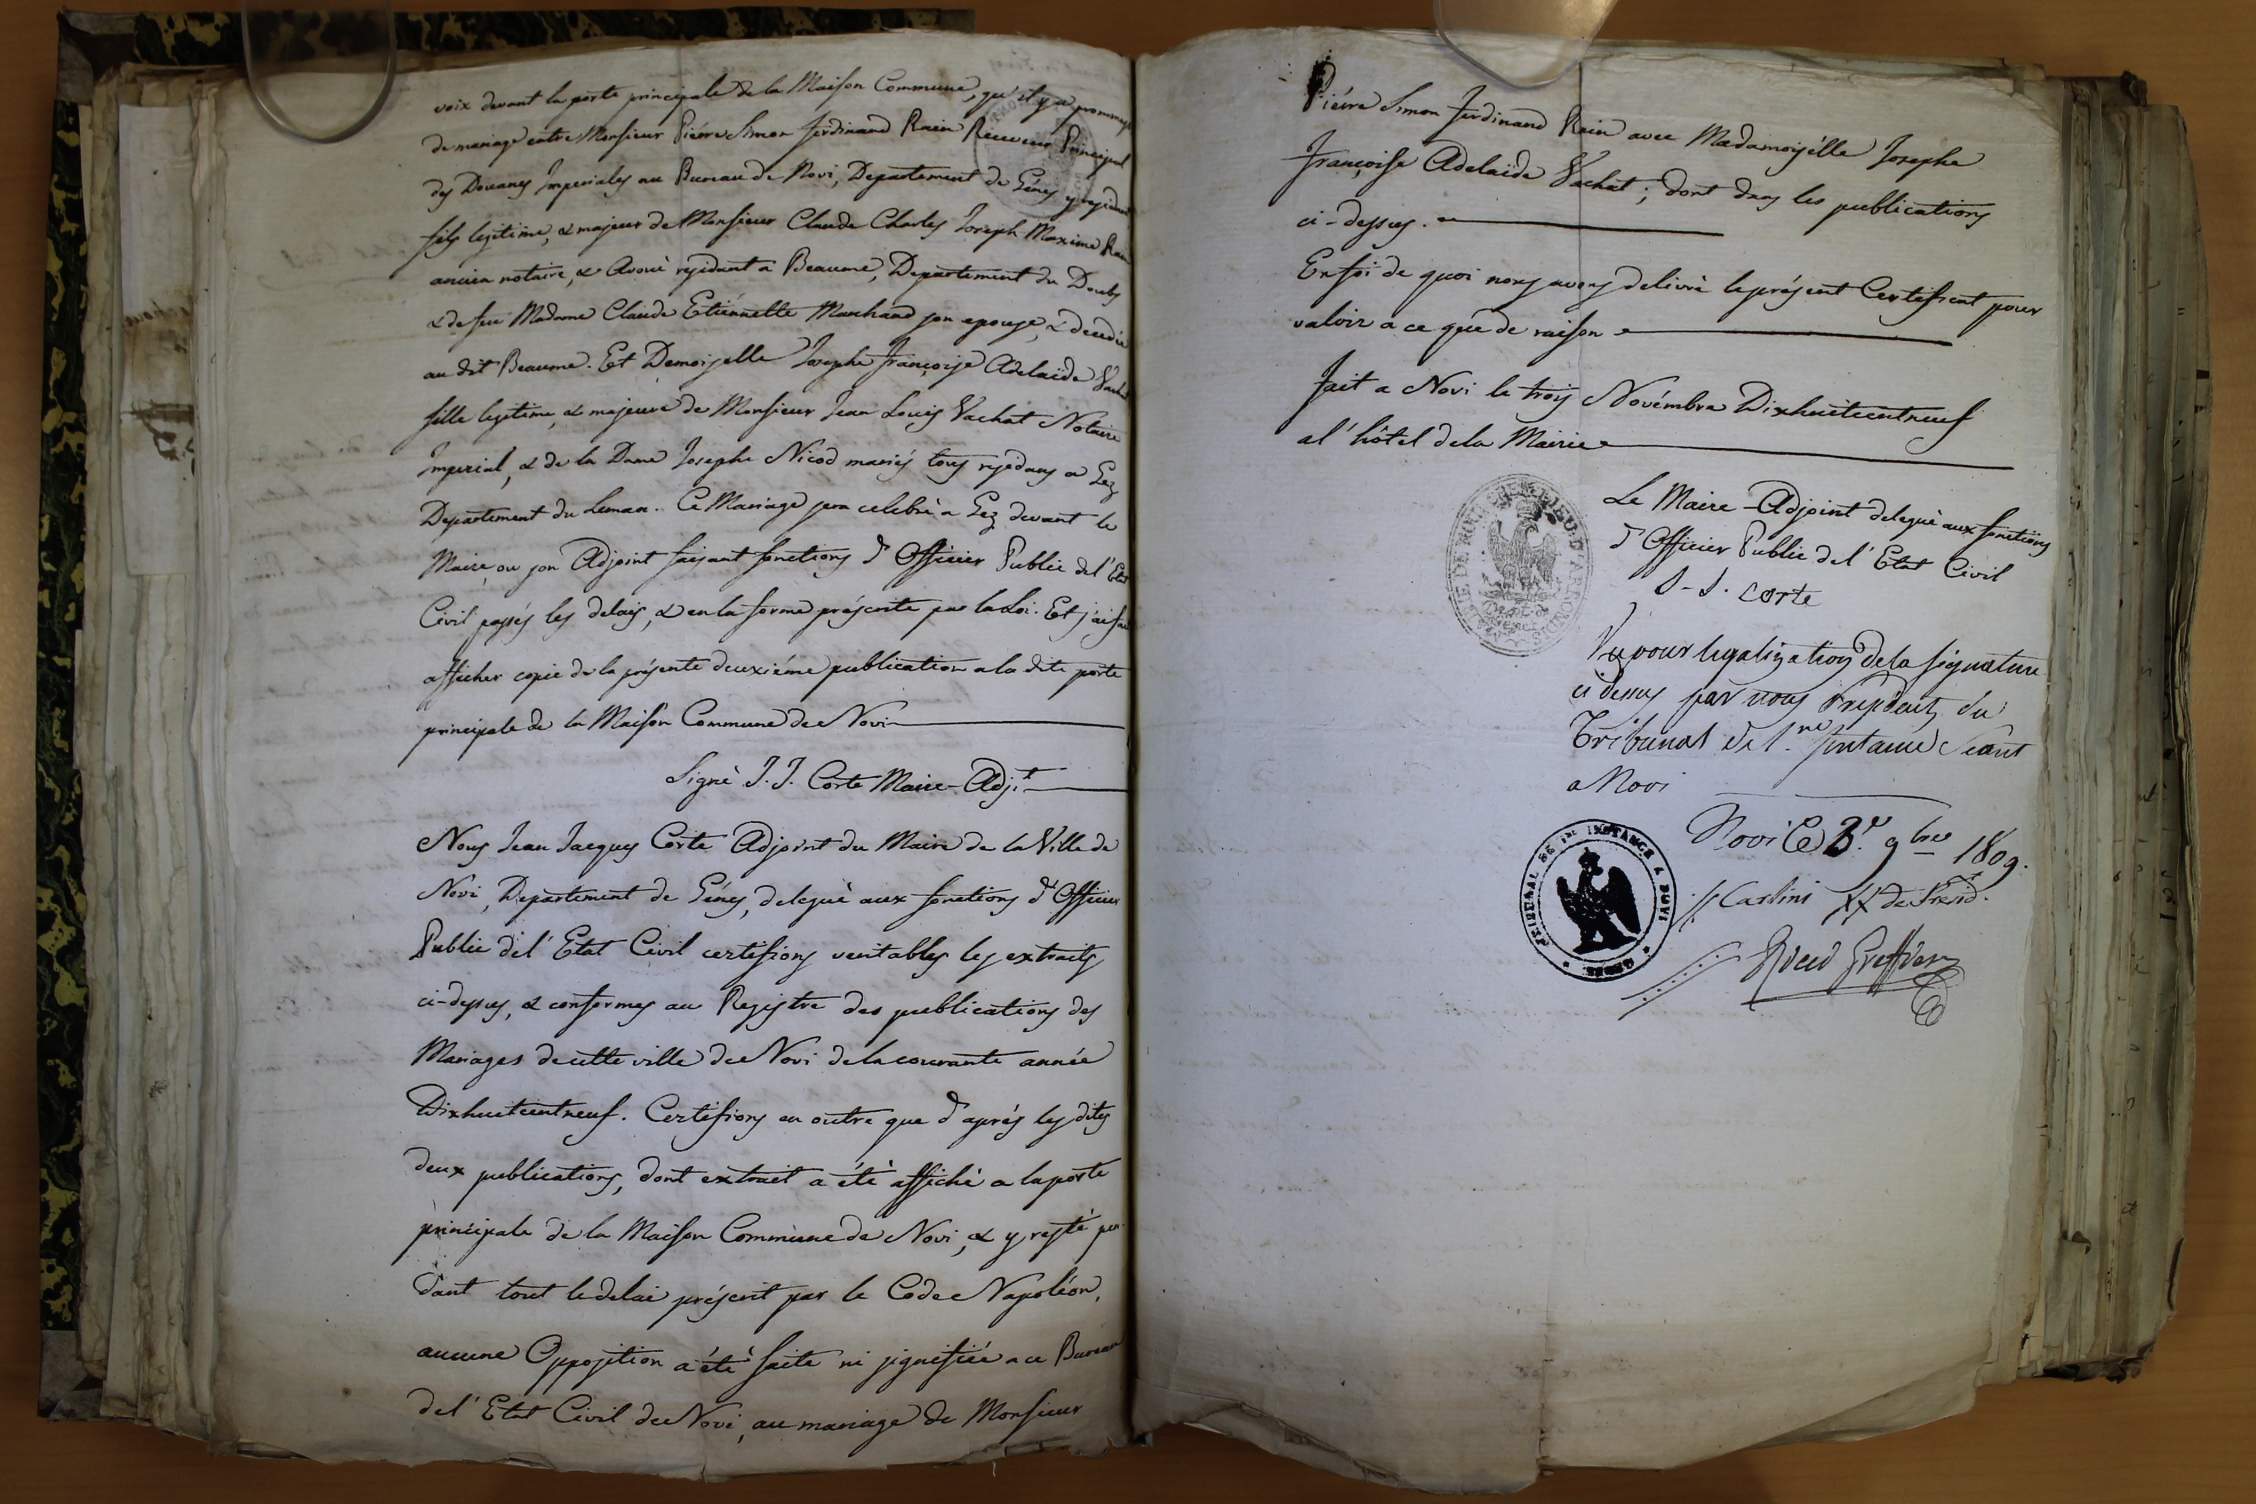 voix devant la porte principale de la Maison Commune, qu'il y a promesse
de mariage entre Monsieur Piérre Simon Ferdinand Rain Receveur Principal
des Douanes Imperiales au Bureau de Novi, Departement de Génes y residant
fils legitime, & majeur de Monsieur Claude Charles Joseph Maxime Rain
ancien notaire, & Avoué residant a Beaume, Departement du Doubs
& de feue Madame Claude Etiénnette Marchand son epouse, & decedée
au dit Beaume. Et Demoiselle Josephe Françoise Adelaïde Vachat
fille legitime, & majeure de Monsieur Jean Louis Vachat Notaire
Imperial, & de la Dame Josephe Nicod mariés tous residans a Gez
Departement du Leman. Ce Mariage sera celebré a Gez devant le
Maire, ou son Adjoint faisant fonctions d'Officier Public del'Etat
Civil passés les delais, & en la forme préscrite par la Loi. Et j'ai fait
afficher copie de la présente deuxiéme publication a la dite porte
principale de la Maison Commune de Novi
Signé J. J. Corte Maire-Adj.t
Nous Jean Jacques Corte Adjoint du Maire de la Ville de
Novi, Departement de Génes, delegué aux fonctions d'Officier
Public del'Etat Civil certifions veritables les extraits
ci-dessus, & conformes au Registre des publications des
Mariages de cette ville de Novi de la courante année
Dixhuitcentneuf. Certifions en outre que d'aprés les dites
deux publications, dont extrait a été affiché a la porte
principale de la Maison Commune de Novi, & y resté pen-
dant tout le delai préscrit par le Code Napoléon,
aucune Opposition a été faite ni signifiée a ce Bureau
del'Etat Civil de Novi, au mariage de Monsieur
Piérre Simon Ferdinand Rain avec Madamoisélle Josephe
Françoise Adelaïde Vachat; dont dans les publications
ci-dessus.
En foi de quoi nous avons delivré le présent Certificat pour
valoir a ce que de raison
Fait a Novi le trois Novémbre Dixhuitcentneuf
a l'hôtel de la Mairie
Le Maire-Adjoint delegué aux fonctions
d'Officier Public del'Etat Civil
J-J. Corte
Vu pour legalisation de la signature
ci dessus par nous President du
Tribunal de 1.re Instance Séant
a Novi
Novi le 3.e 9bre 1809.
Carlini ff de Presid.t
Greffier
TRIBUNAL DE 1RE INSTANCE A NOVI
GENES